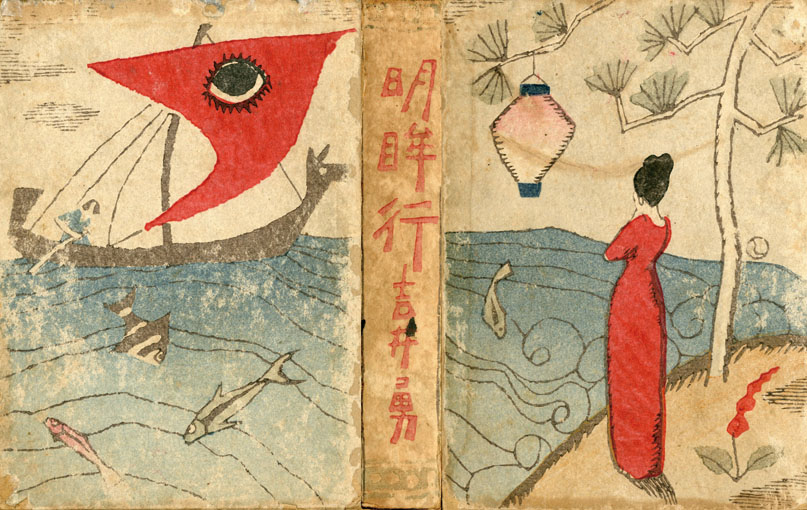 明眸行
吉井勇